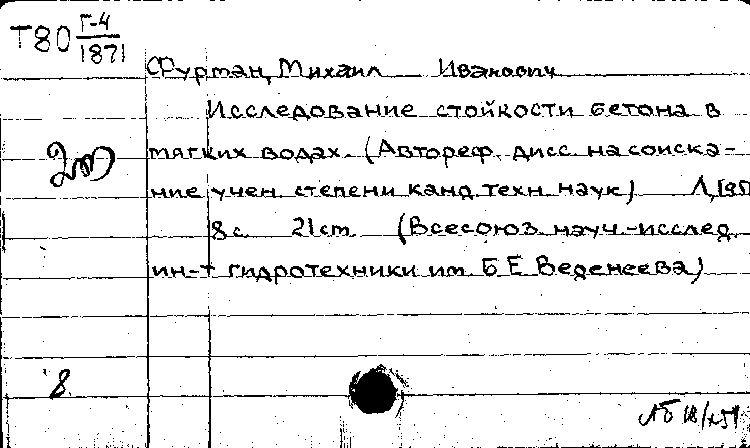 Т80 Г-4
1871
Фурман, Михаил Иванович
Исследование стойкости бетона в
мягких водах. (Автореф. дисс. на соиска-
ние учен. степени канд. техн. наук) Л, 195
8 с. 21 cm (Всесоюз. науч.-исслед.
ин-т гидротехники им. Б Е Веденеева)
8